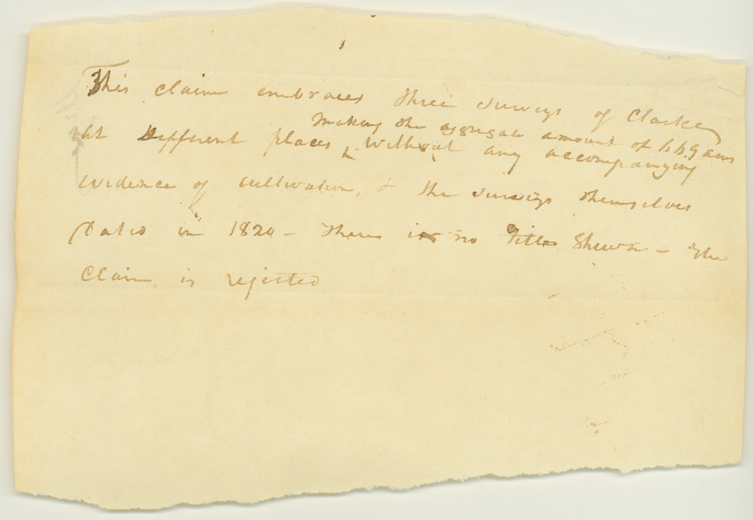 This claim embraces three surveys of Clarke
making the aggregate amount of
at Different places, without any accompanying
evidence of cultivation, & the surveys themselves
dated in 1820 – there is no Title Shewn – The
Claim is rejected